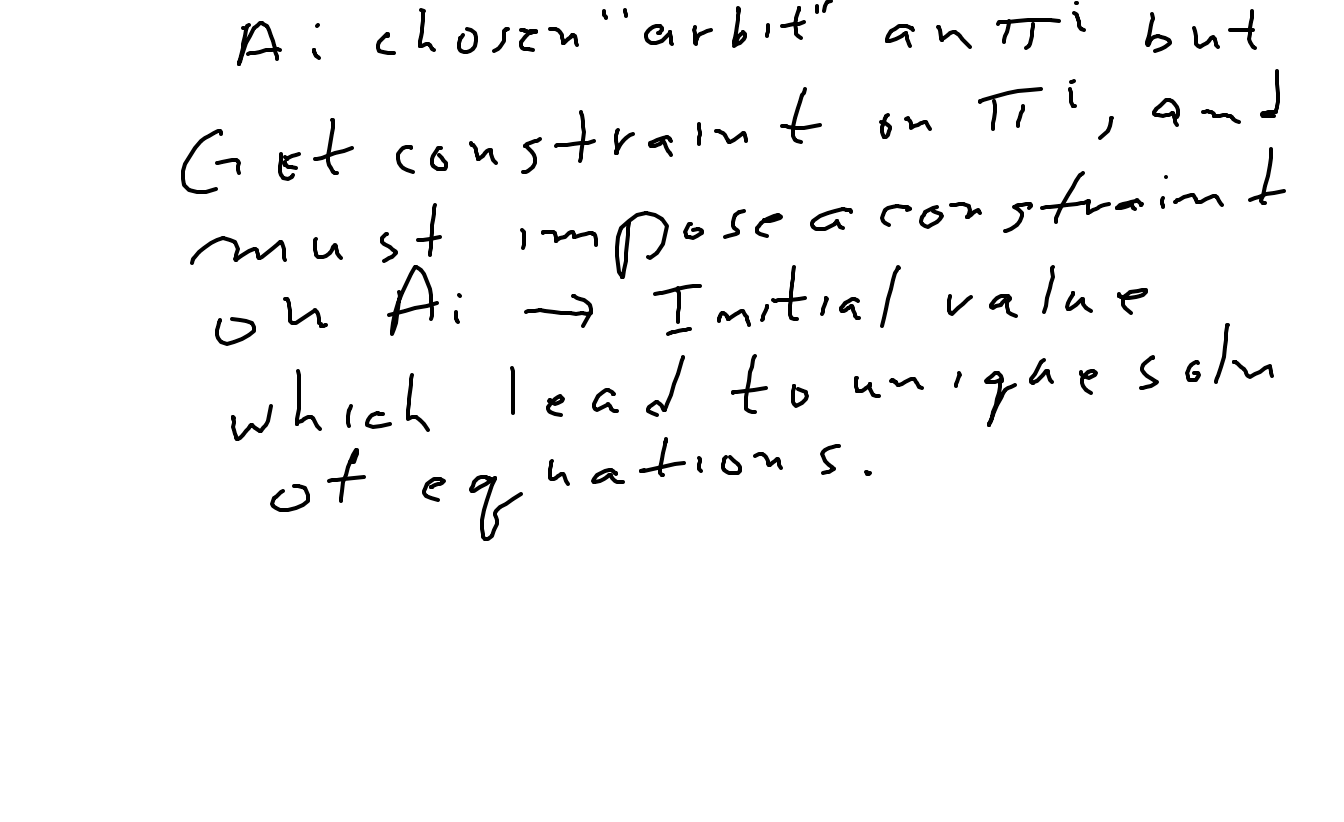 Ai chosen "arbit" an πⁱ but
Get constraint on πⁱ, and
must impose a constraint
on Ai → Initial value
which lead to unique soln
of equations.